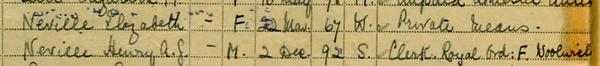 Neville Elizabeth - F. 2 Mar. 67 W. Private Means.
Neville Henry A.G. - M. 2 Dec. 92 S. Clerk Royal Ord: F. Woolwich